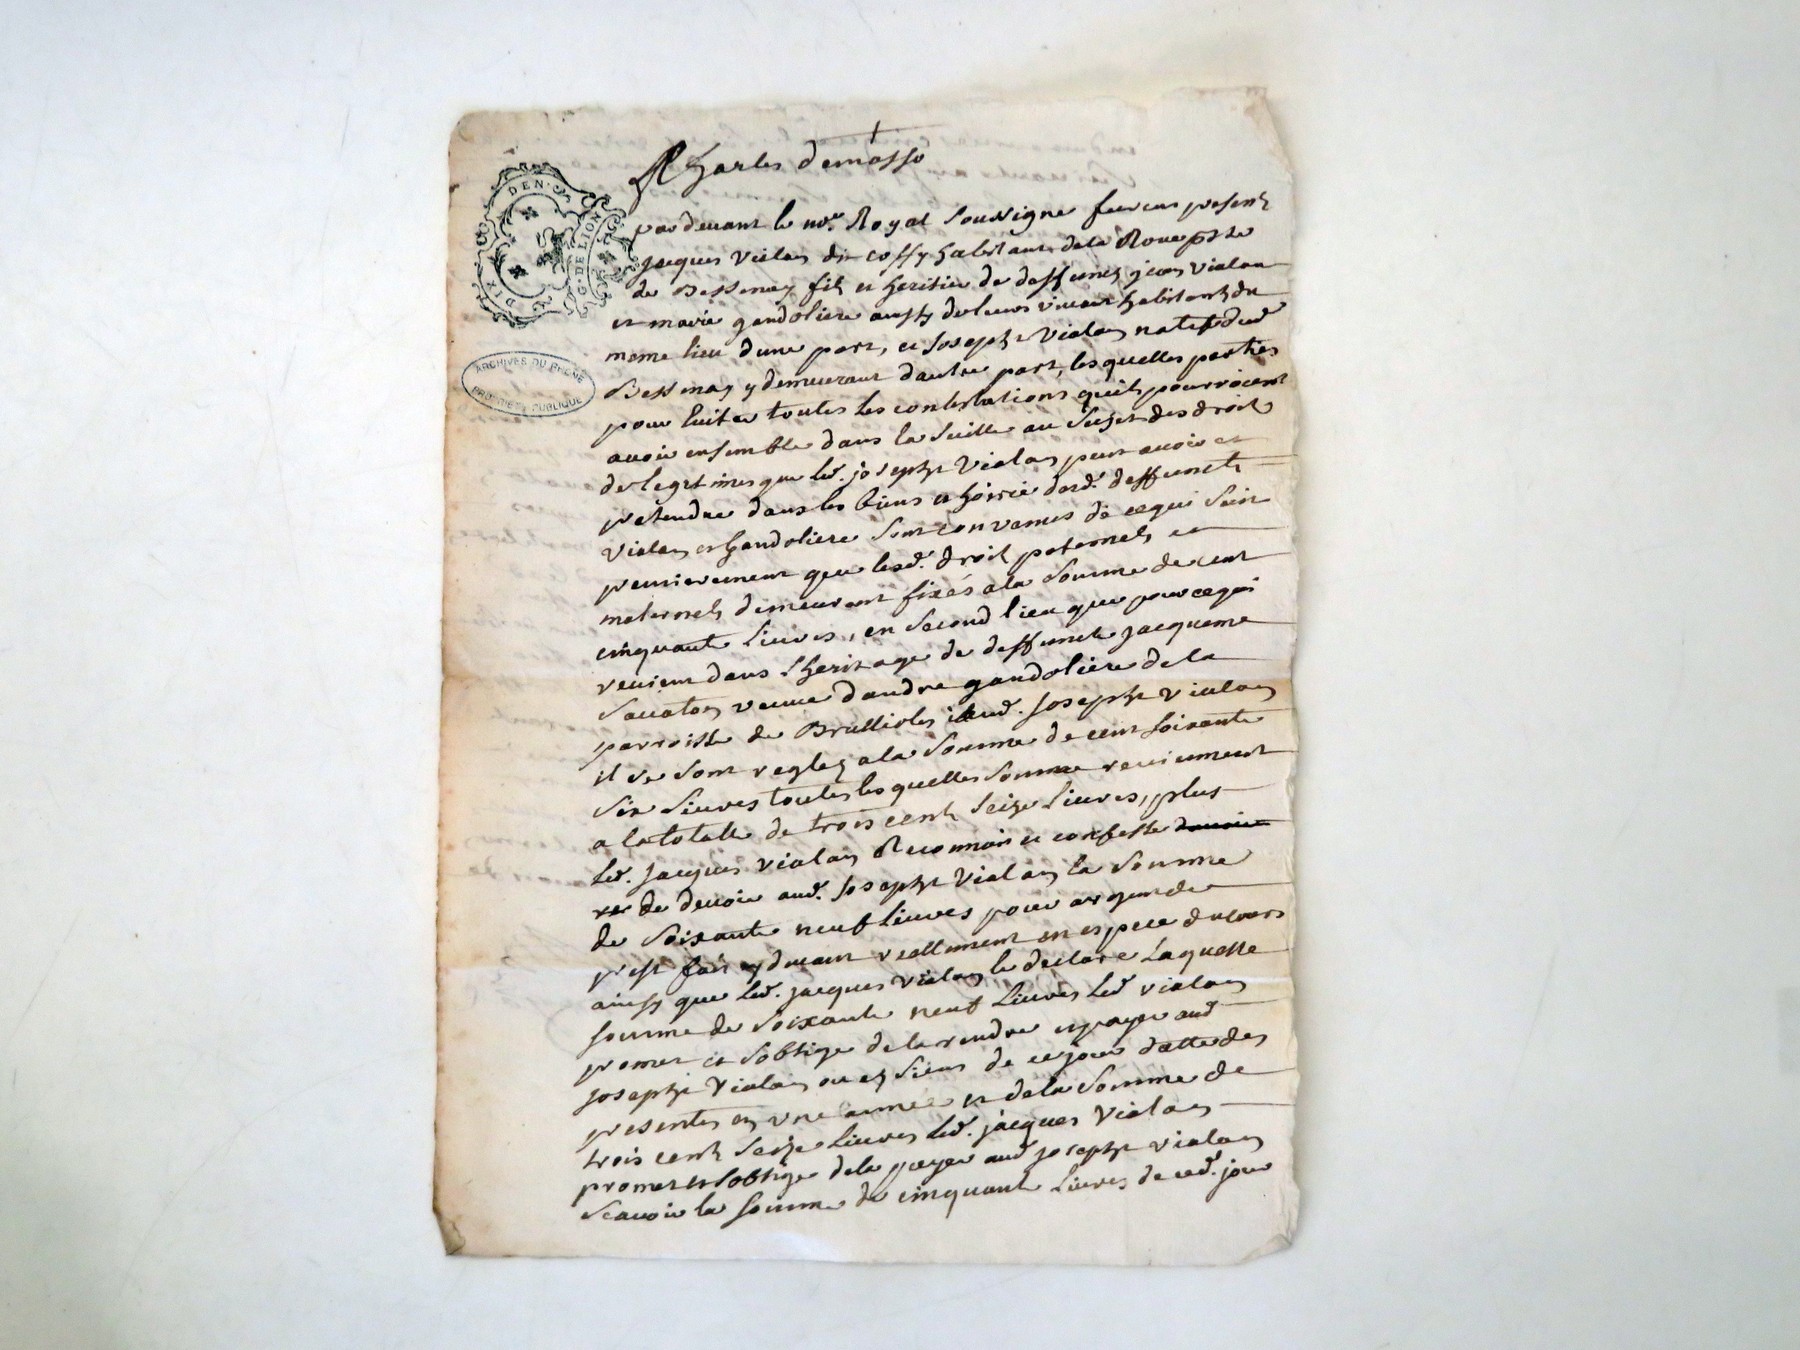 DIX DEN.
G. DE LION
ARCHIVES DU RHÔNE
PROPRIÉTÉ PUBLIQUE
Charles demasso
par devant le nore. Royal soussigne furent presents
jacques vialan dit coffy habitant de la Roue psse de
de Bessenay fils et heritier de deffuncts jean vialan
et marie gandoliere aussy de leurs vivant habitants du
meme lieu dune part, et joseph vialan natif dud
Bessenay y demeurant dautre part, les quelles parties
pour Euiter toutes les contestations quils pourroient
avoir ensemble dans la suitte au sujet des droit
de legitimes que led. joseph vialan peut avoir et
pretendre dans les biens et hoirie desd. deffuncts
vialan et gandoliere sont convenus de ce qui suit
premierement que lesd. droit paternels et
maternels demeurent fixés a la somme de cent
cinquante Liures, en second lieu que pour ce qui
revient dans lheritage de deffuncte jacqueme
veuue dandre gandoliere de la
parroisse de Brullioles aud. joseph vialan
il se sont reglez a la somme de cent soixante
six Liures toutes les quelles somme reviennent
a la totalle de trois cents seize Liures, plus
led. jacques vialan Reconnois et confesse
de devoir aud. joseph vialan la somme
de soixante neuf Liures pour argent de
prest fait cy devant reellement en espece du cours
ainsy que led. jacques vialan le declare Laquelle
somme de soixante neuf Liures led vialan
promet et soblige de la rendre et payer aud
joseph vialan ou es siens de ce jour datte des
presentes en vne annee et de la somme de
trois cents seize Liures led. jacques vialan
promet et soblige de la payer aud joseph vialan
scavoir la somme de cinquante Liures de ced. jour